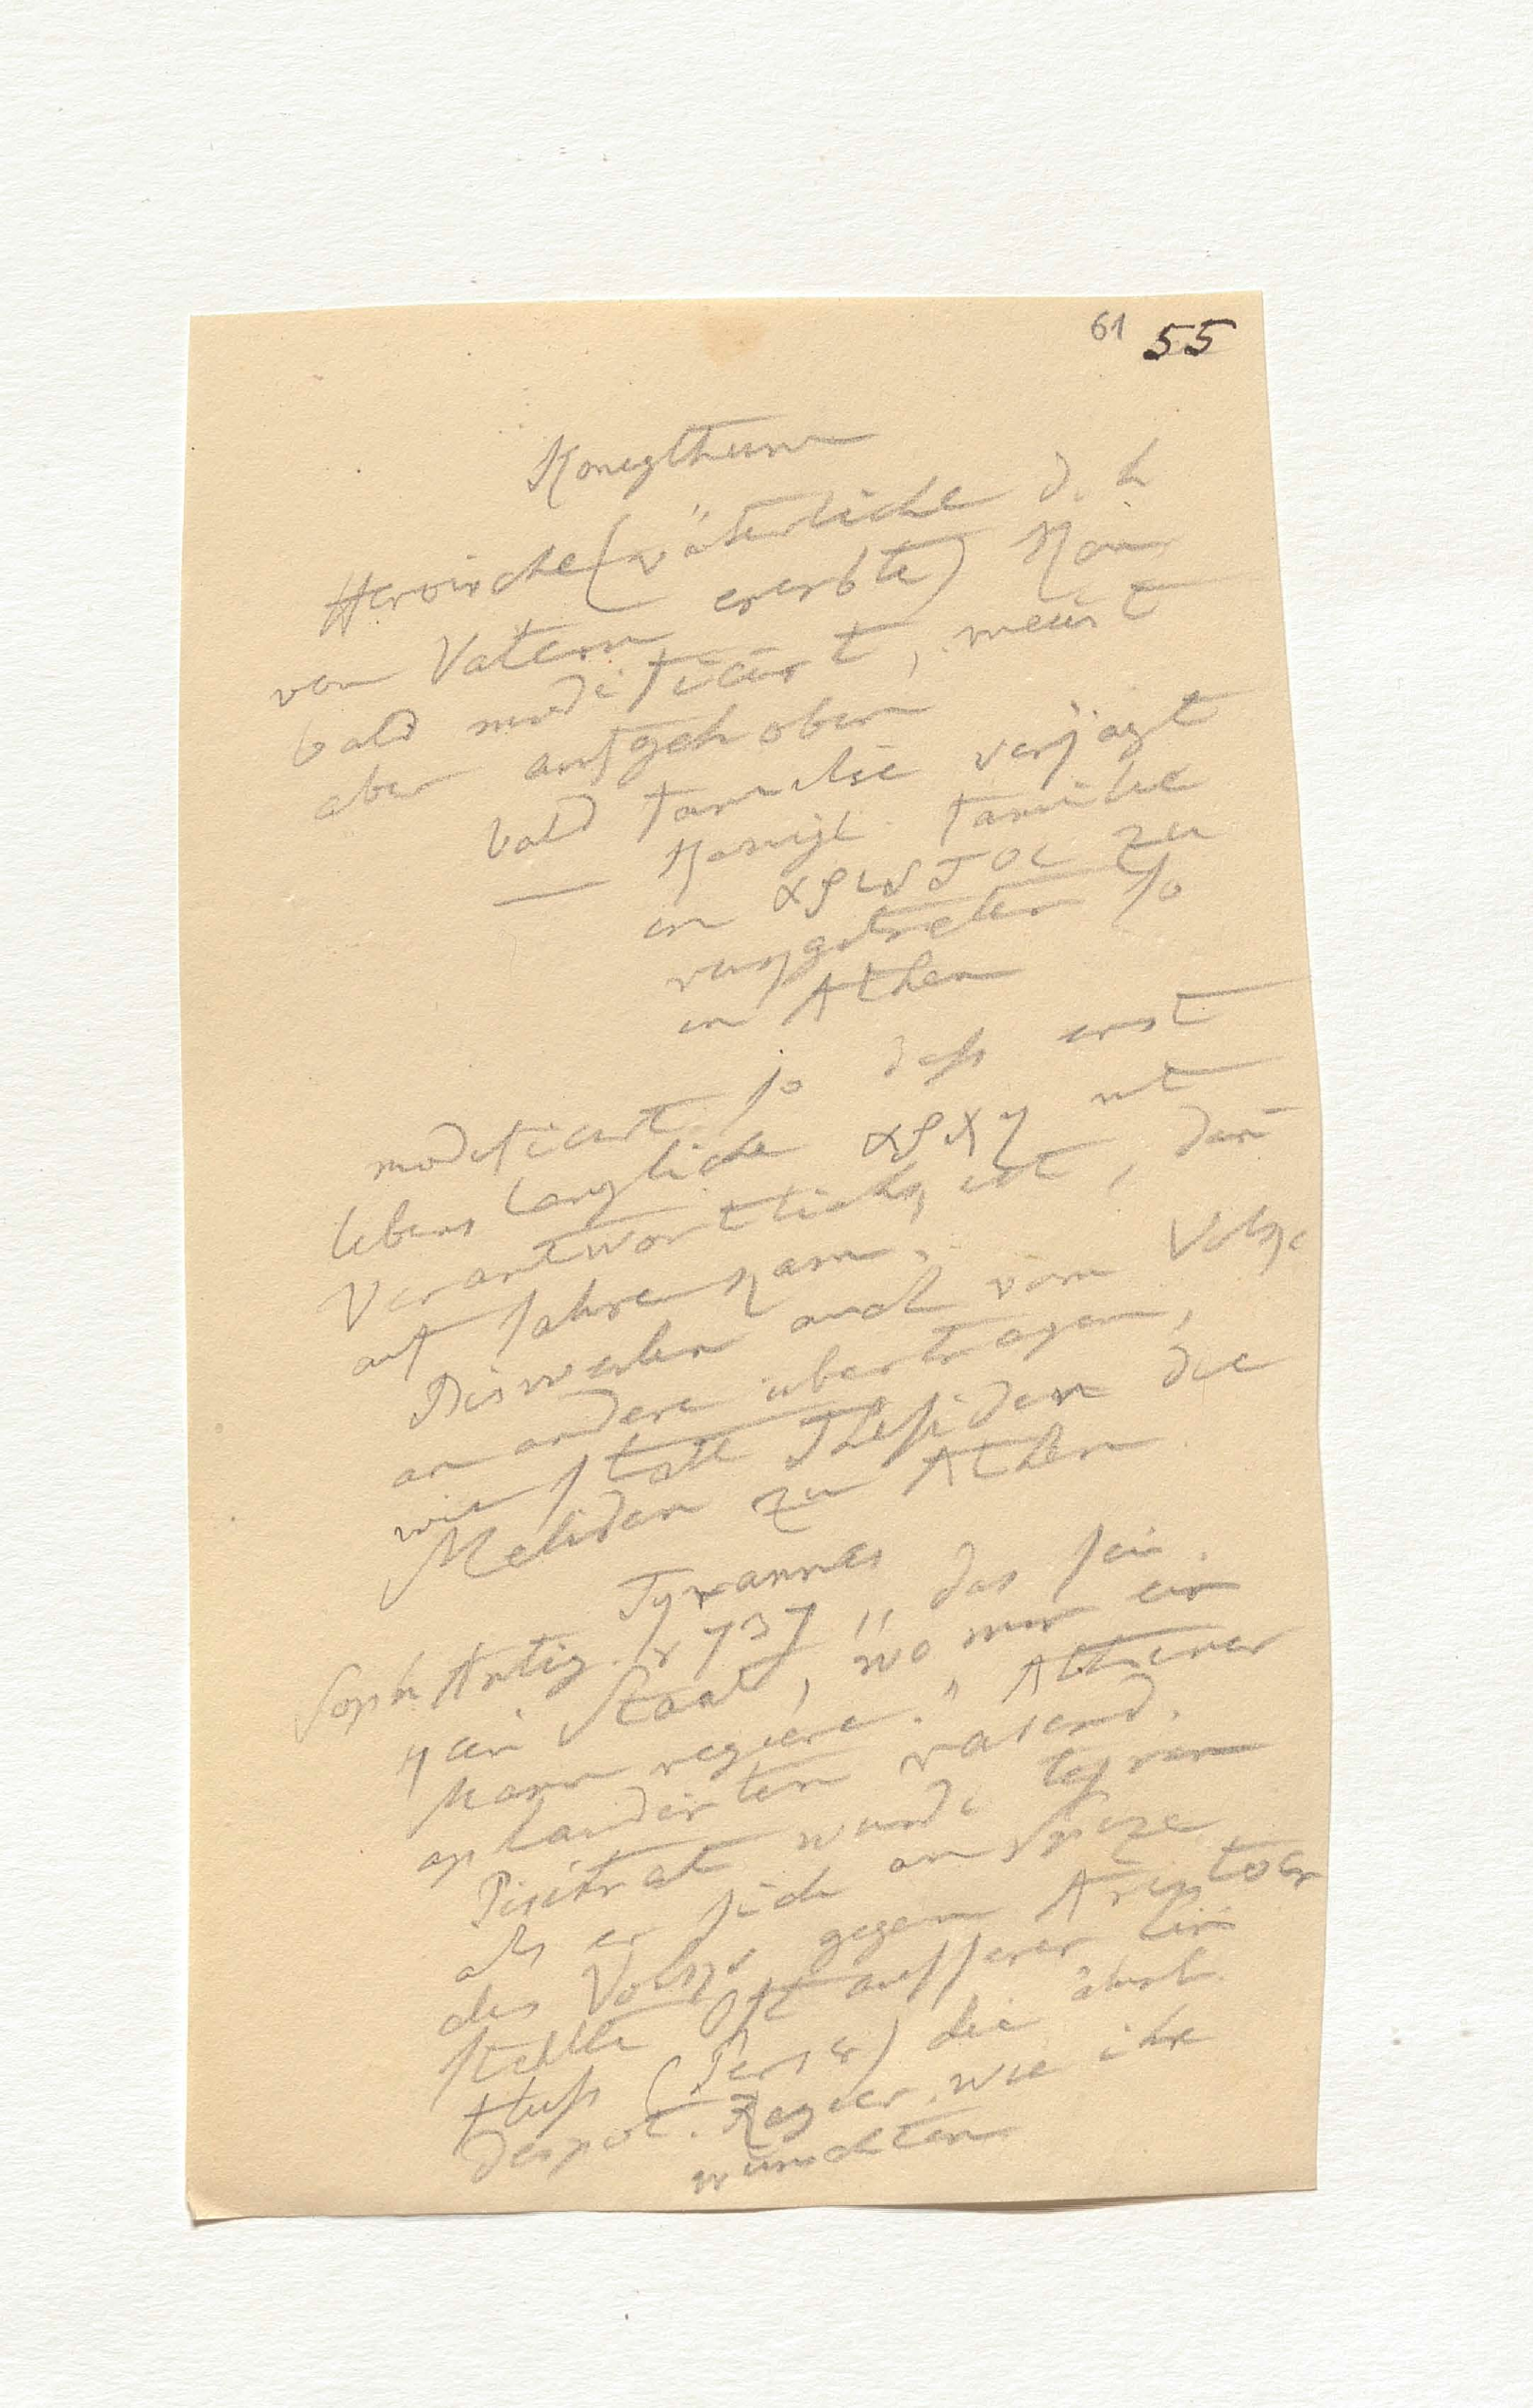 61 55
Konigthum
Heroische (väterliche d. h
von Vatern ererbte) Kön
bald modificirt, meist
aber aufgehoben
bald Familie verjagt
— Konigl. Familie
in αριστοι zu
rückgetreten so
in Athen
modificirt so daß erst
lebenslangliche αρχη mit
Verantwortlichk, ist, dan
auf Jahre kam.
Bisweilen auch vom Volke
an andere übertragen,
wie statt Thesiden die
Meliden zu Athen
Tyrannis
Soph Antig. v 737 „das sei
kein Staat, wo nur ein
Mann regiere." Athener
aplaudirten rasend.
Pisistrat wurde tyran
als er sich an Spize
des Volks gegen Aristocr
stellte Oft ausserer Ein
fluß (Perser) die ähnl.
despot. Regier. wie ihre
wünschten